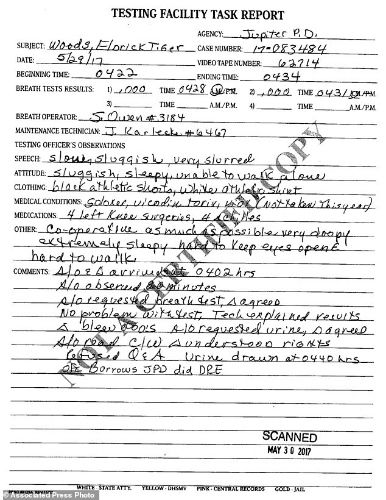 TESTING FACILITY TASK REPORT
AGENCY: Jupiter P.D.
SUBJECT: Woods, Elorick Tiger CASE NUMBER: 17-083484
DATE: 5/29/17 VIDEO TAPE NUMBER: 62714
BEGINNING TIME: 0422 ENDING TIME: 0434
BREATH TESTS RESULTS: 1) .000 TIME 0428 A.M./P.M. 2) .000 TIME 0431 A.M./P.M.
3) TIME A.M./P.M. 4) TIME A.M./P.M.
BREATH OPERATOR: S. Owen #3184
MAINTENANCE TECHNICIAN: J. Karlecke #6467
TESTING OFFICER'S OBSERVATIONS
SPEECH: slow, sluggish, very slurred
ATTITUDE: sluggish, sleepy, unable to walk alone
CLOTHING: black athletic shorts, white athletic shirt
MEDICAL CONDITIONS: vicodin torix, not taken this year)
MEDICATIONS: 4 left Knee surgeries,
OTHER: Co-operative as much as possible very
extremely sleepy hard to keep eyes open
hard to walk
COMMENTS: A/O & ∆ arrived at 0402 hrs
A/O observed minutes
A/O requested breath test, ∆ agreed
No problem with test, Tech explained results
∆ blew .000's A/O requested urine, ∆ agreed
A/O read C/W ∆ understood rights
Refused Q&A Urine drawn at 0440 hrs
Borrows JPD did DRE
NOT A CERTIFIED COPY
SCANNED
MAY 30 2017
WHITE - STATE ATTY. YELLOW - DHSMV PINK - CENTRAL RECORDS GOLD - JAIL
© Associated Press Photo